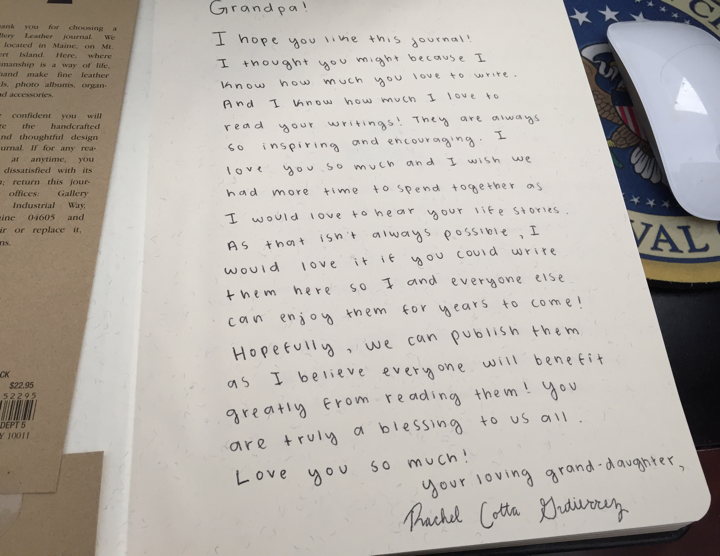 ank you for choosing a
llery Leather journal. We
located in Maine, on Mt.
ert Island. Here, where
manship is a way of life,
hand make fine leather
ls, photo albums, organ-
nd accessories.
confident you will
te the handcrafted
nd thoughtful design
urnal. If for any rea-
at anytime, you
dissatisfied with its
n; return this jour-
offices: Gallery
Industrial Way,
ine 04605 and
ir or replace it,
ns.
CK
$22.95
52295
DEPT 5
Y 10011
Grandpa!
I hope you like this journal!
I thought you might because I
know how much you love to write.
And I know how much I love to
read your writings! They are always
so inspiring and encouraging. I
love you so much and I wish we
had more time to spend together as
I would love to hear your life stories.
As that isn't always possible, I
would love it if you could write
them here so I and everyone else
can enjoy them for years to come!
Hopefully, we can publish them
as I believe everyone will benefit
greatly from reading them! You
are truly a blessing to us all.
Love you so much!
Your loving grand-daughter,
Rachel Cotta Gutierrez
VAL